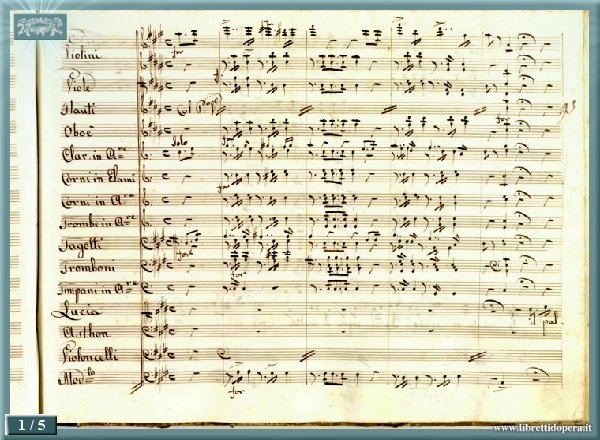 Violini
Viole
Flauti
Oboè
Clar. in A.re
Corni in Elami
Corni in A.re
Trombe in A.re
Fagotti
Tromboni
Timpani in A.re
Lucia
Asthon
Violoncelli
for
Solo
for
for
for
93
1 / 5
www.librettidopera.it